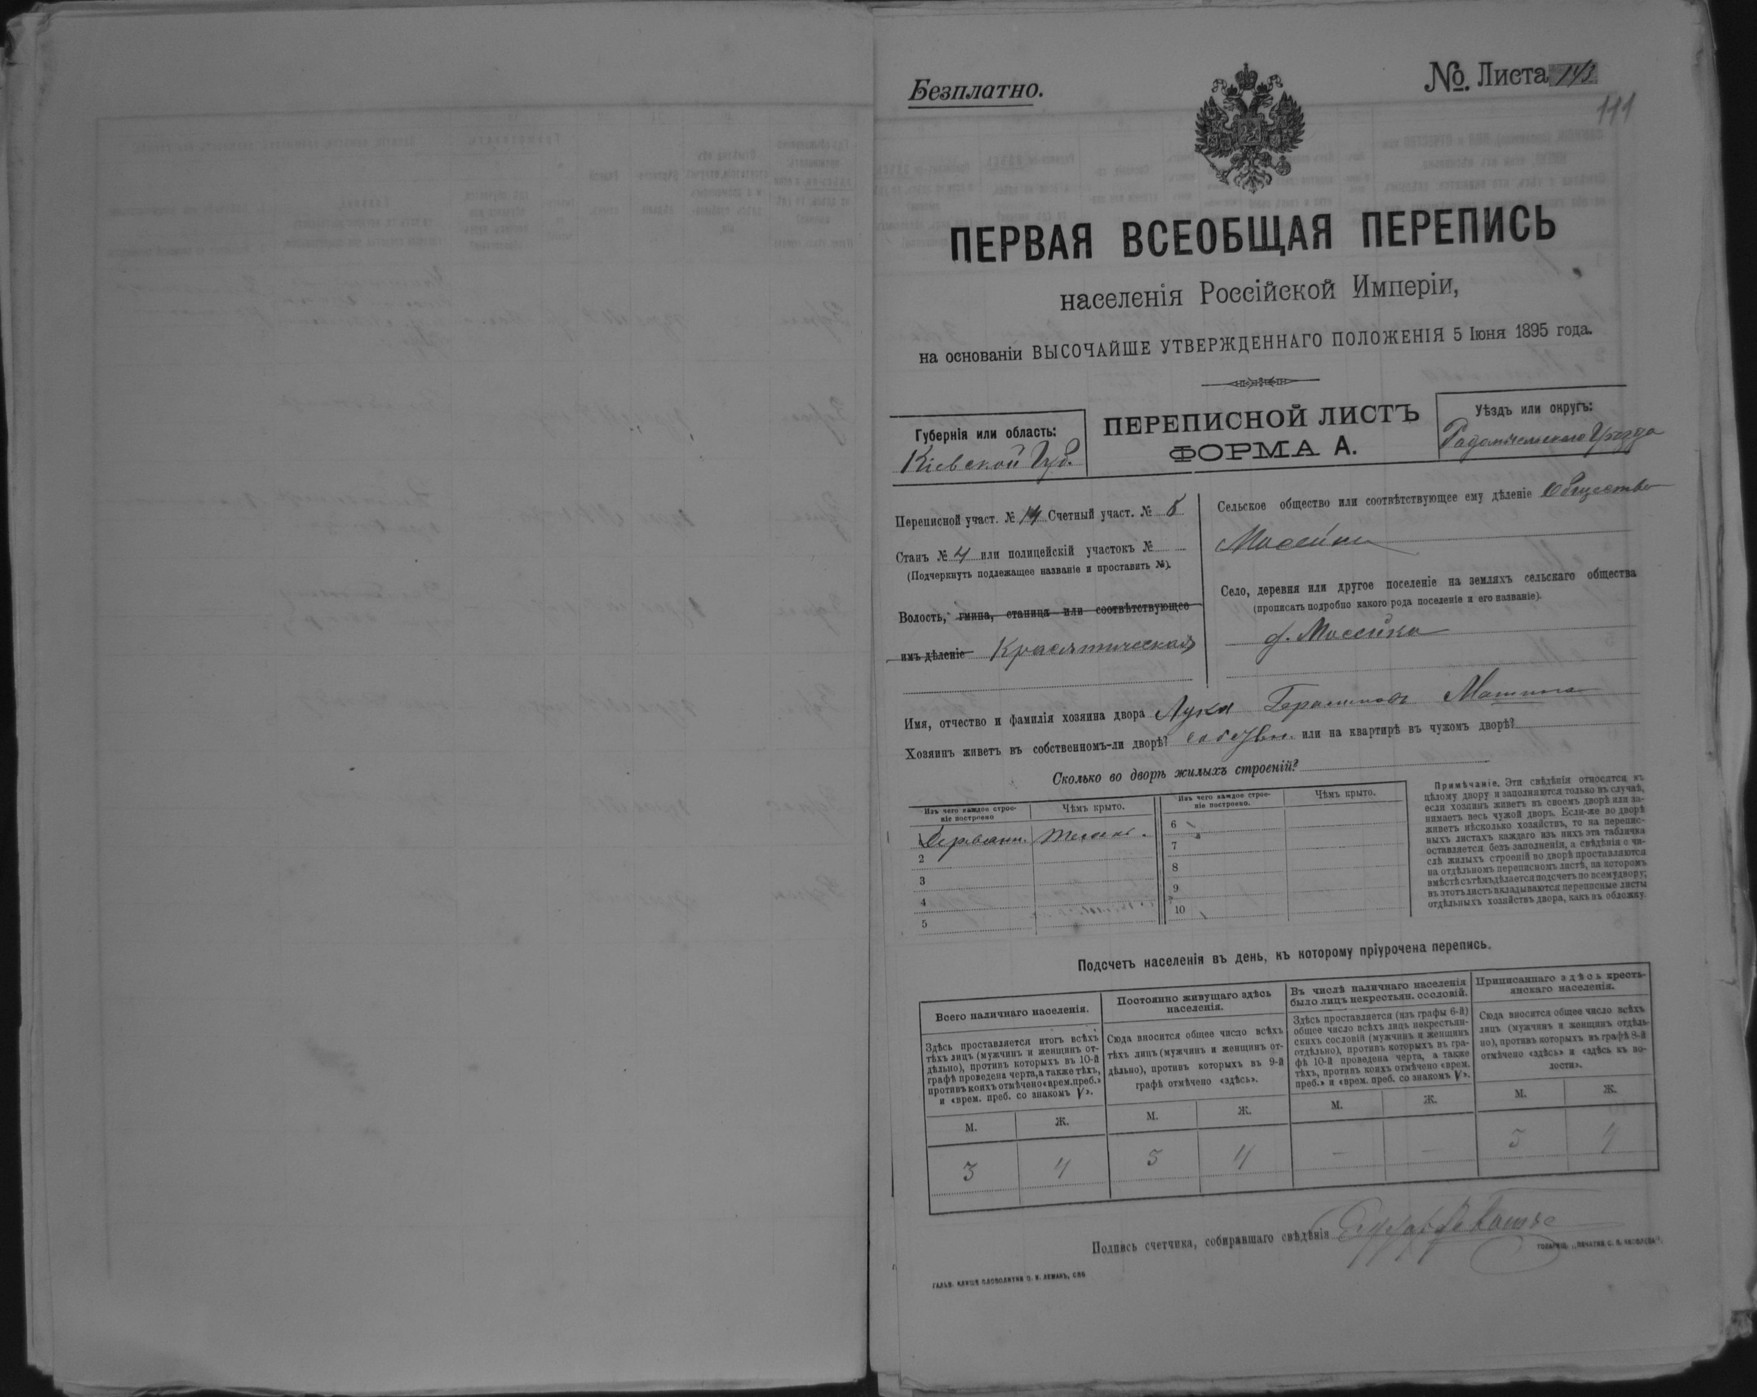 Безплатно.
№. Листа 143
111
ПЕРВАЯ ВСЕОБЩАЯ ПЕРЕПИСЬ
населенія Россійской Имперіи,
на основаніи ВЫСОЧАЙШЕ УТВЕРЖДЕННАГО ПОЛОЖЕНІЯ 5 Іюня 1895 года.
Губернія или область:
Кіевской Губ.
ПЕРЕПИСНОЙ ЛИСТЪ
ФОРМА А.
Уѣздъ или округъ:
Радомысльскаго Уѣзда
Переписной участ. № 14 Счетный участ. № 8
Станъ № 4 или полицейскій участокъ №
(Подчеркнуть подлежащее названіе и проставить №).
Волость, гмина, станица или соотвѣтствующее
имъ дѣленіе Красятическая
Сельское общество или соотвѣтствующее ему дѣленіе Общество
Село, деревня или другое поселеніе на земляхъ сельскаго общества
(прописать подробно какого рода поселеніе и его названіе).
д. Мосейка
Имя, отчество и фамилія хозяина двора Лука Герасимовъ
Хозяинъ живетъ въ собственномъ-ли дворѣ? собствен. или на квартирѣ въ чужомъ дворѣ?
Сколько во дворѣ жилыхъ строеній?
Изъ чего каждое строеніе построено
Чѣмъ крыто.
Изъ чего каждое строеніе построено.
Чѣмъ крыто.
2
3
4
5
6
7
8
9
10
Примѣчаніе. Эти свѣдѣнія относятся къ
цѣлому двору и заполняются только въ случаѣ,
если хозяинъ живетъ въ своемъ дворѣ или за-
нимаетъ весь чужой дворъ. Если-же во дворѣ
живетъ нѣсколько хозяйствъ, то на перепис-
ныхъ листахъ каждаго изъ нихъ эта табличка
оставляется безъ заполненія, а свѣдѣнія о чи-
слѣ жилыхъ строеній во дворѣ проставляются
на отдѣльномъ переписномъ листѣ, на которомъ
вмѣстѣ съ тѣмъ дѣлается подсчетъ по всему двору;
въ этотъ листъ вкладываются переписные листы
отдѣльныхъ хозяйствъ двора, какъ въ обложку.
Подсчетъ населенія въ день, къ которому пріурочена перепись.
Всего наличнаго населенія.
Здѣсь проставляется итогъ всѣхъ
тѣхъ лицъ (мужчинъ и женщинъ от-
дѣльно), противъ которыхъ въ 10-й
графѣ проведена черта, а также тѣхъ,
противъ коихъ отмѣчено «врем. преб.»
и «врем. преб. со знакомъ V».
Постоянно живущаго здѣсь
населенія.
Сюда вносится общее число всѣхъ
тѣхъ лицъ (мужчинъ и женщинъ от-
дѣльно), противъ которыхъ въ 9-й
графѣ отмѣчено «здѣсь».
Въ числѣ наличнаго населенія
было лицъ некрестьян. сословій.
Здѣсь проставляется (изъ графы 6-й)
общее число всѣхъ лицъ некрестьян-
скихъ сословій (мужчинъ и женщинъ
отдѣльно), противъ которыхъ въ гра-
фѣ 10-й проведена черта, а также
тѣхъ, противъ коихъ отмѣчено «врем.
преб.» и «врем. преб. со знакомъ V».
Приписаннаго здѣсь кресть-
янскаго населенія.
Сюда вносится общее число всѣхъ
лицъ (мужчинъ и женщинъ отдѣль-
но), противъ которыхъ въ графѣ 8-й
отмѣчено «здѣсь» и «здѣсь къ во-
лости».
М. Ж. М. Ж. М. Ж. М. Ж.
3 4 3 4 - - 3 4
Подпись счетчика, собиравшаго свѣдѣнія